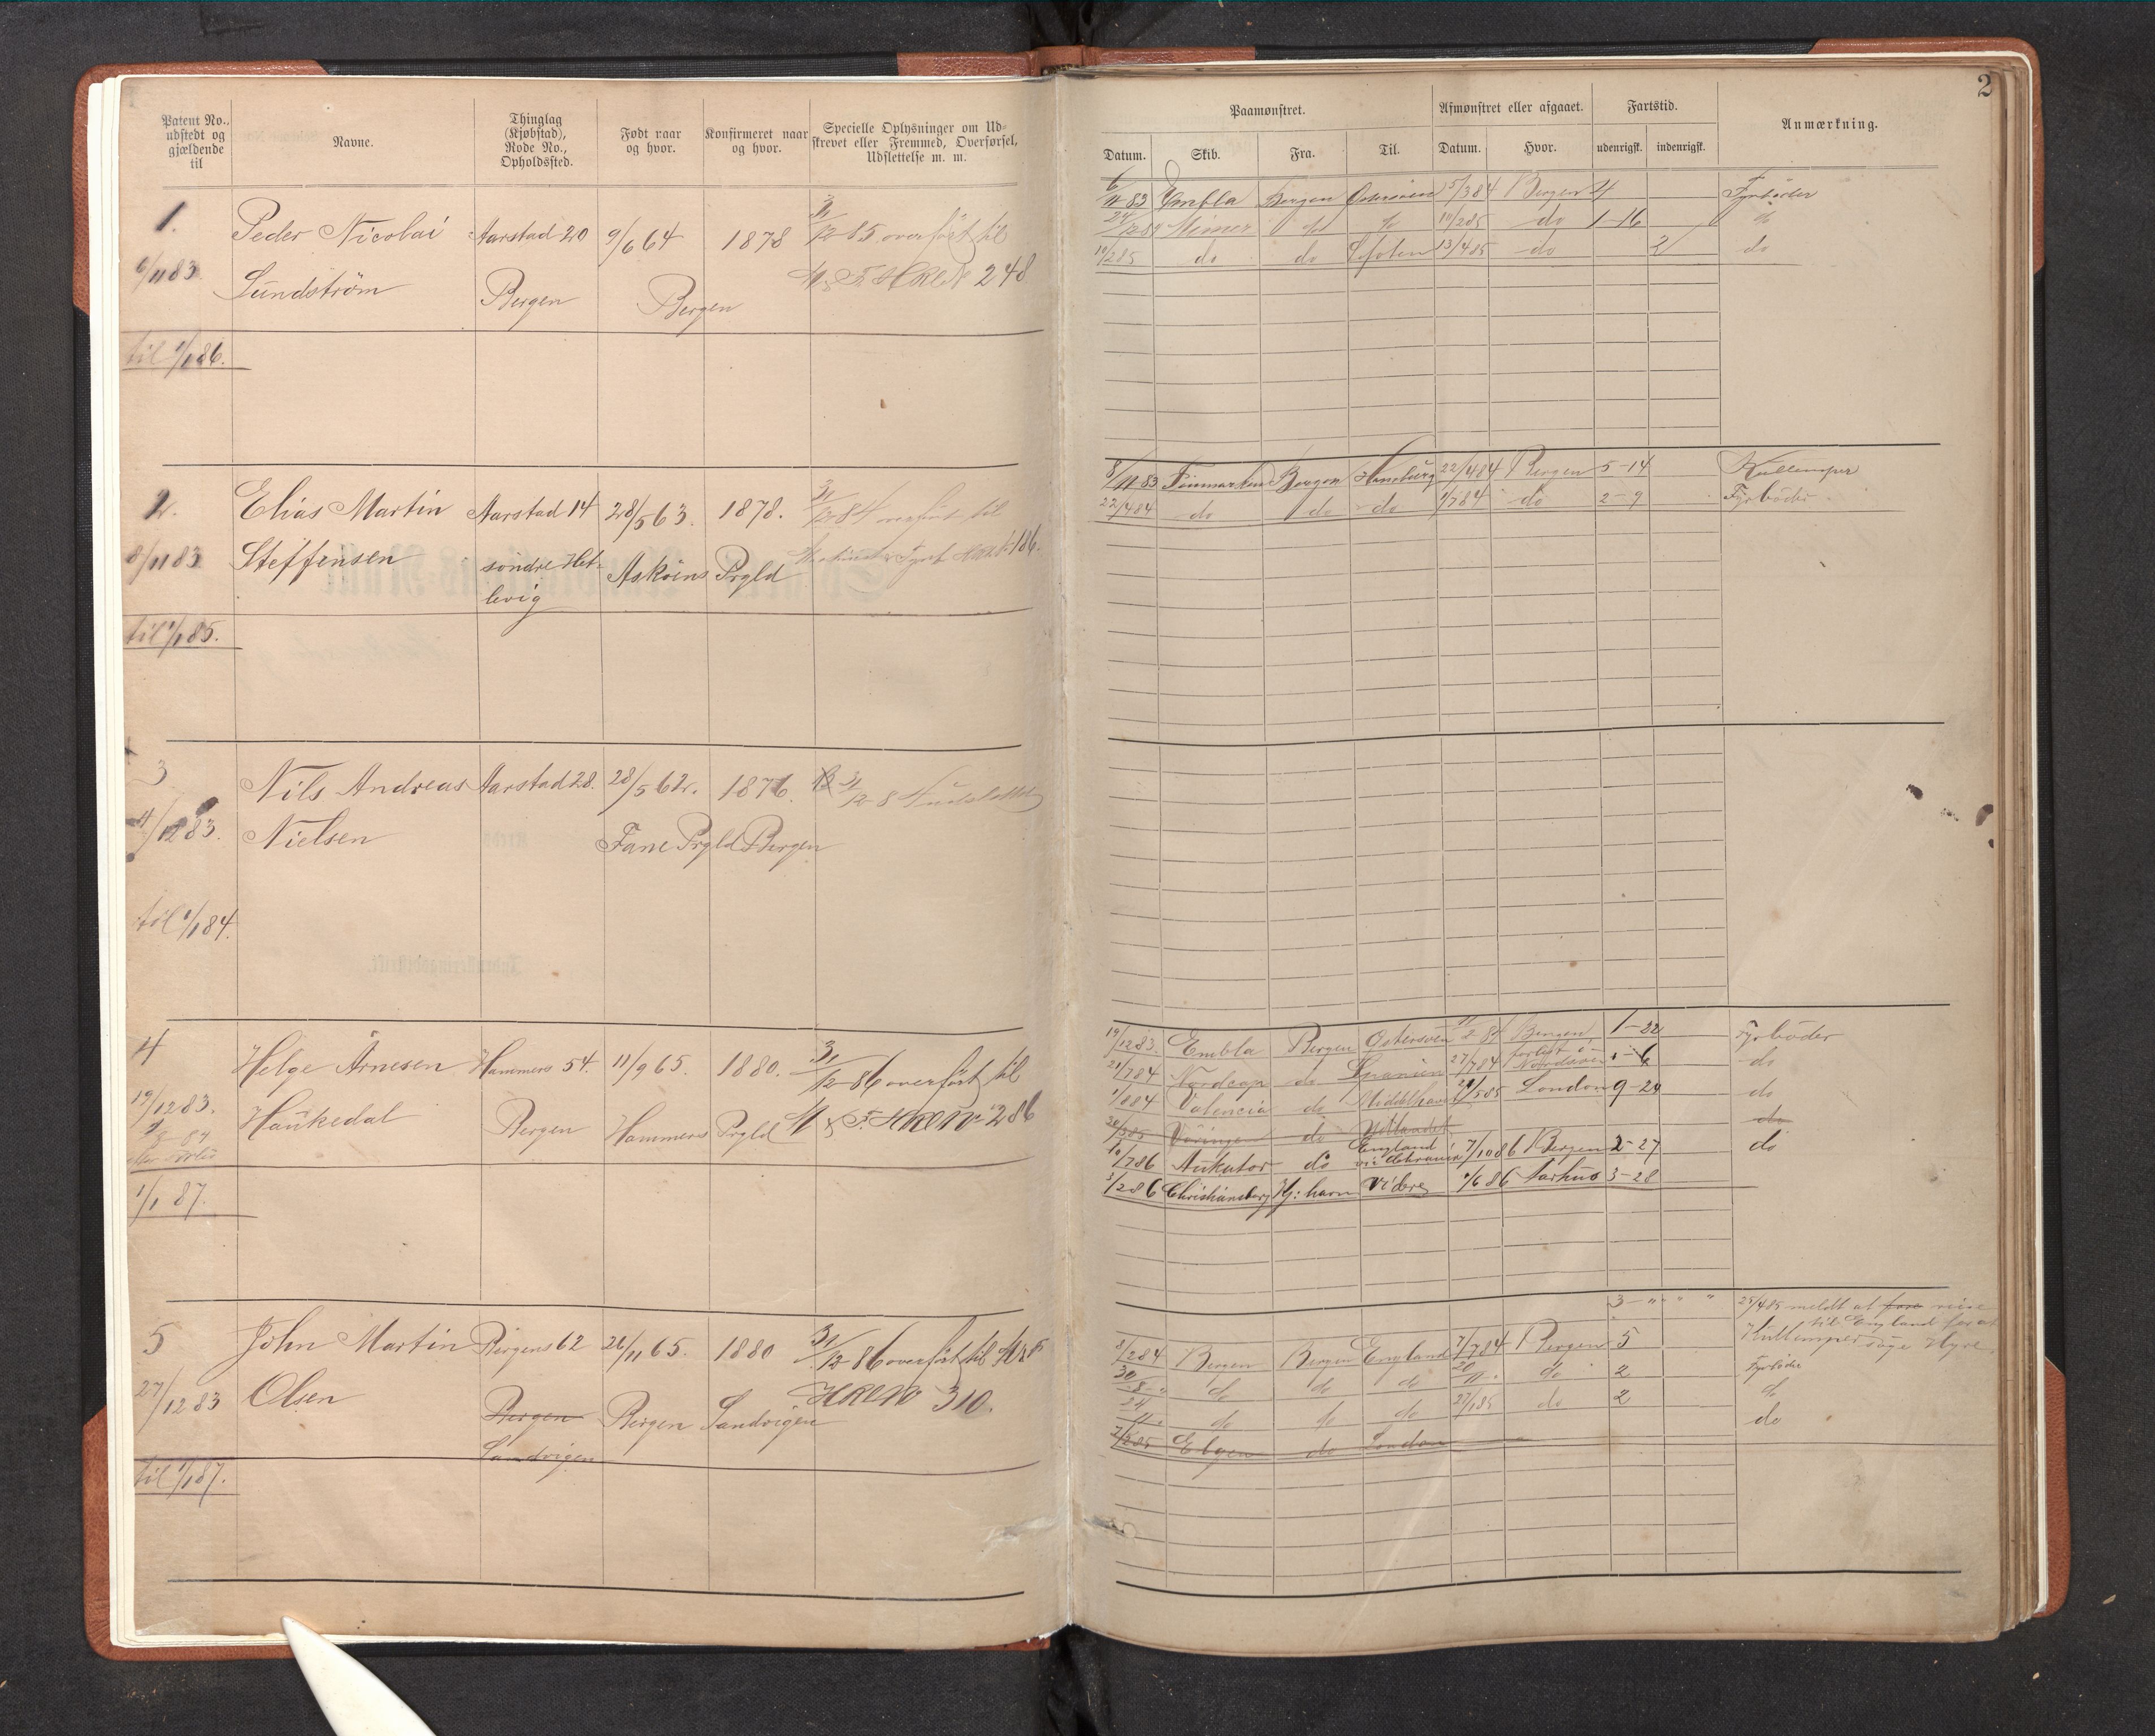 2
Patent No., udstedt og gjældende til
Navne.
Thinglag (Kjøbstad), Rode No., Opholdssted.
Født naar og hvor.
Konfirmeret naar og hvor.
Specielle Oplysninger om Udskrevet eller Fremmed, Overførsel, Udslettelse m. m.
Paamønstret.
Afmønstret eller afgaaet.
Fartstid.
Anmærkning.
Datum.
Skib.
Fra.
Til.
Datum.
Hvor.
udenrigsk.
indenrigsk.
1. Peder Nicolai Aarstad 20 9/6 64 1878 31/12 85 overført til
6/11 83. Sundström Bergen Bergen 248
til 1/1 86.
6/11 83 Embla Bergen Östersöen 15/3 84 Bergen 4 Fyrböder
24/12 84 Mimer do do 10/2 85 do 1-16 do
10/2 85 do do Lofoten 13/4 85 do 2 do
2. Elias Martin Aarstad 14 28/5 63. 1878. 31/12 84 overført til
8/11 83 Steffensen söndre Het- Asköens Prgld 186.
levig
til 1/1 85.
8/11 83 Finmarken Bergen Hamburg 22/4 84 Bergen 5-14 Kullemper
22/4 84 do do do 1/7 84 do 2-9 Fyrböder
3 Nils Andreas Aarstad 28. 28/5 62. 1876. 31/12 84 udslettet
4/12 83. Nielsen Fane Prgld Bergen
til 1/1 84.
4 Helge Arnesen Hammers 54. 11/9 65. 1880. 31/12 86 overført til
19/12 83. Haukedal Bergen Hammers Prgld M & F. HRL No 286
1/1 87.
19/12 83. Embla Bergen Östersöen 84 Bergen 1-22 Fyrböder
21/7 84 Nordcap do Spanien 27/7 84 forlist i Nordsöen - 6 do
1/8 84 Valencia do 21/5 85 London 9-24 do
30/3 85 Vöringen do Udlandet do
10/7 86 Aukator do England 7/10 86 Bergen 2-27 do
3/2 86 Christiansborg Kj: havn Videre 1/6 86 Aarhus 3-28
5 John Martin Bergens 62 26/11 65. 1880 31/12 86 overført til
27/12 83 Olsen Bergen Bergen Sandvigen HRL No 310.
Sandvigen
til 1/1 87.
3 - " - " " 25/4 85 meldt at fare reise
til England for at
8/2 84 Bergen Bergen England 7/7 84 Bergen 5 Kullemper söge Hyre.
30/8 " do do do 20/11 " do 2 Fyrböder
24/11 " do do do 27/1 85 do 2 do
7/2 85 do London do